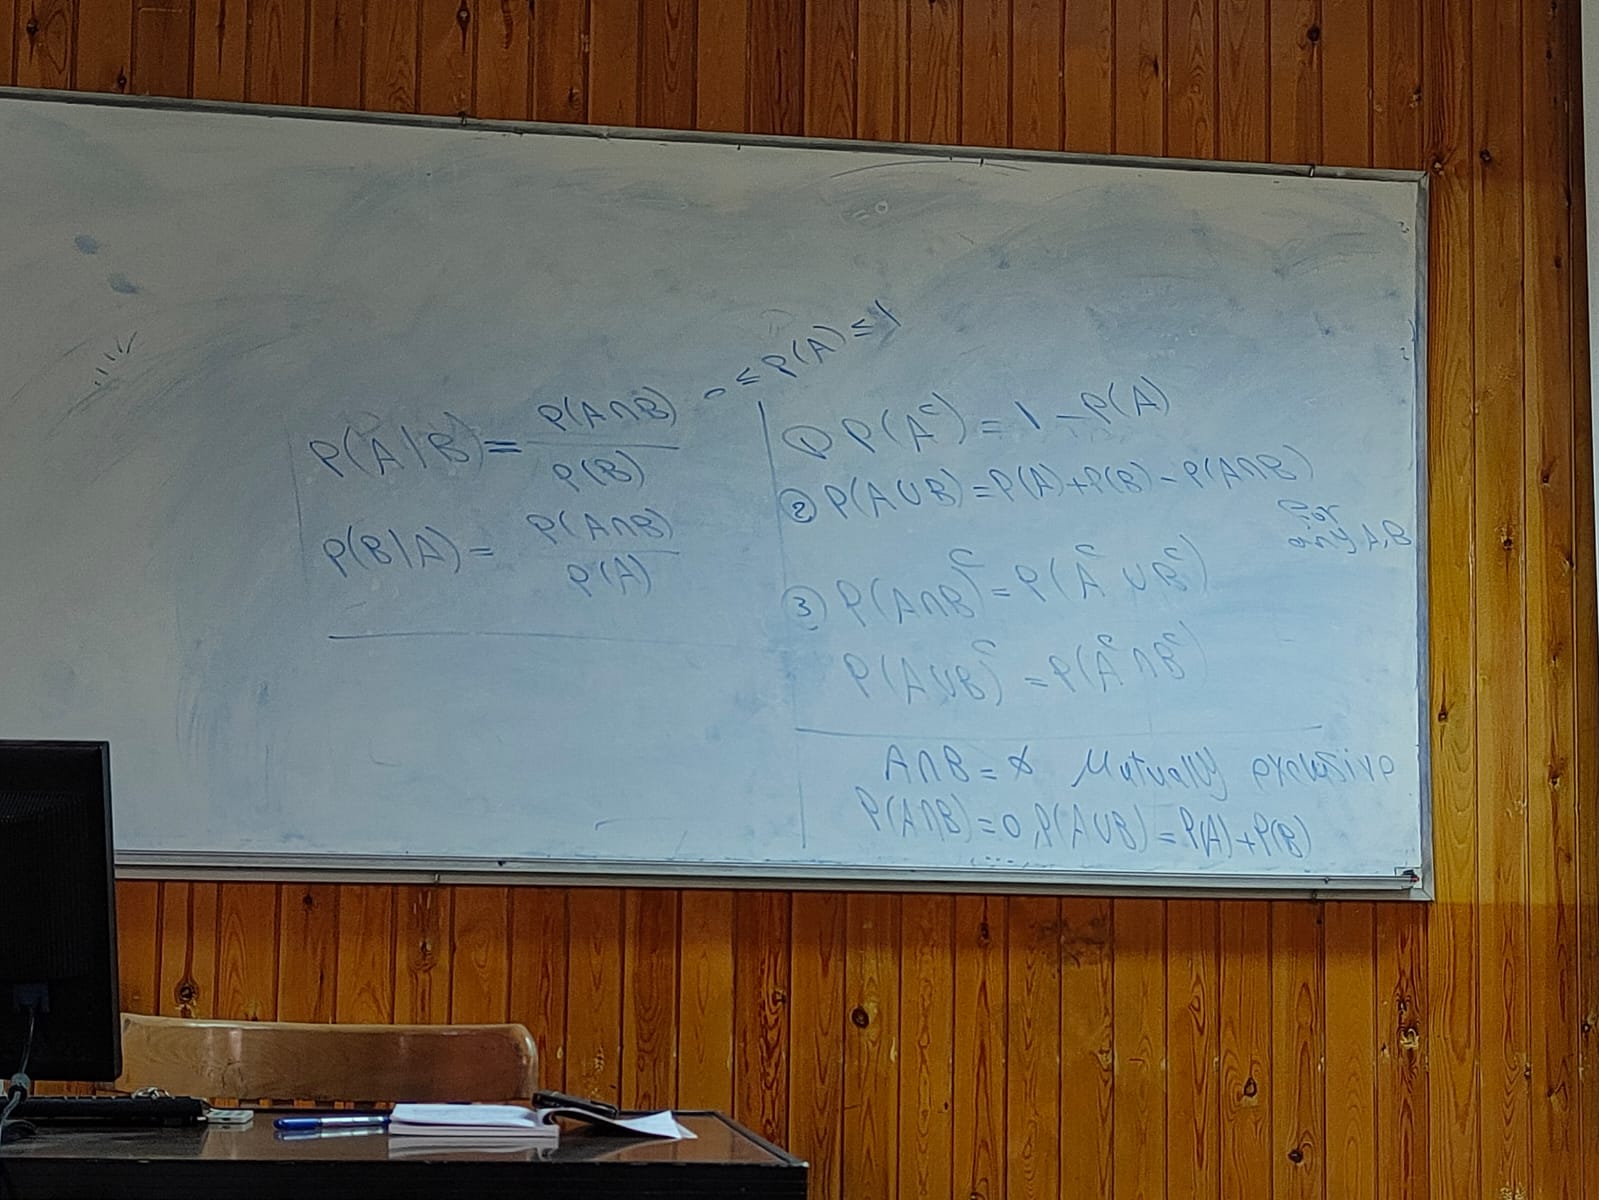 0 ≤ P(A) ≤ 1
P(A|B) = P(A∩B) / P(B)
P(B|A) = P(A∩B) / P(A)
① P(Aᶜ) = 1 - P(A)
② P(A∪B) = P(A)+P(B) - P(A∩B)
for
any A,B
③ P(A∩B)ᶜ = P(Aᶜ ∪ Bᶜ)
P(A∪B)ᶜ = P(Aᶜ ∩ Bᶜ)
A∩B = ∅ Mutually exclusive
P(A∩B) = 0, P(A∪B) = P(A)+P(B)